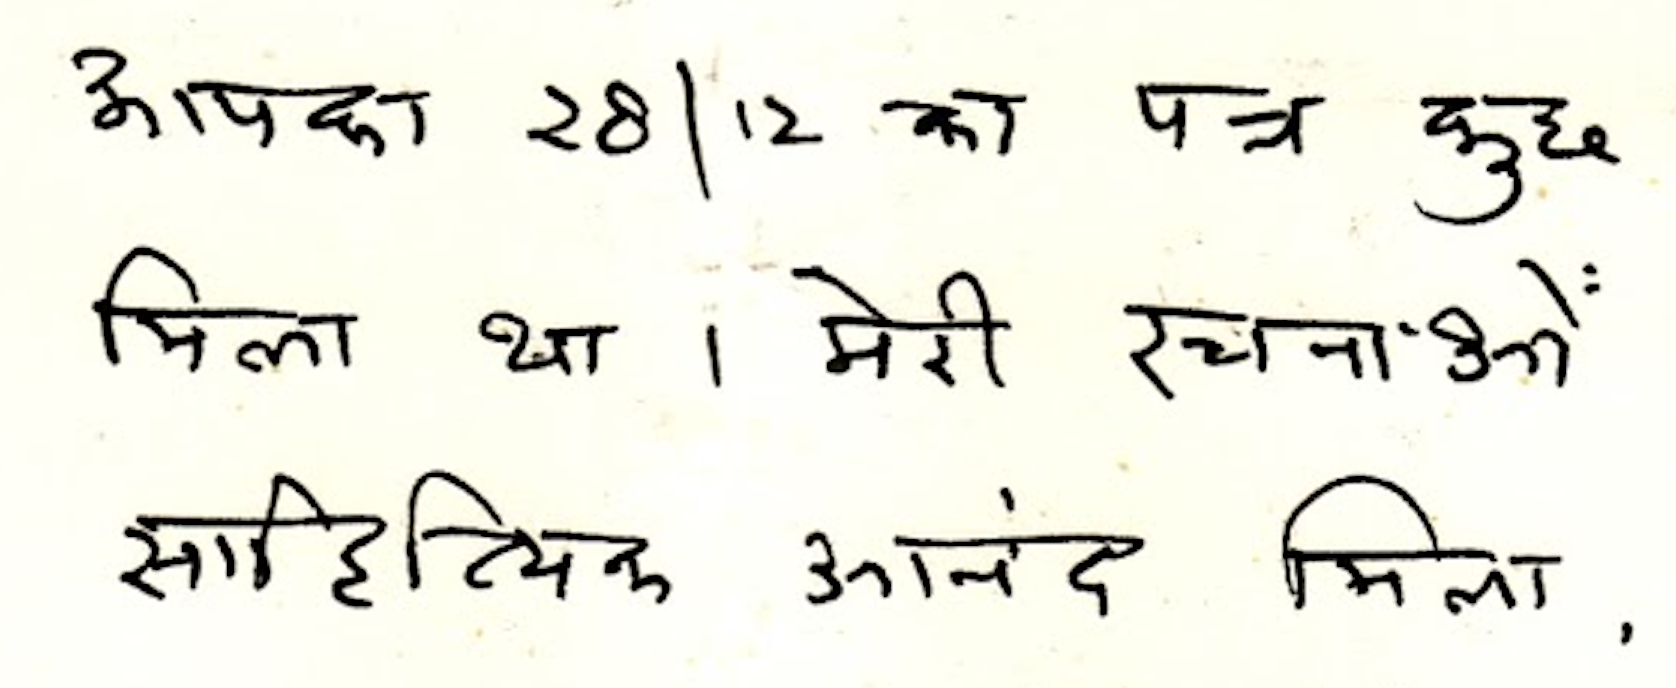 आपका २8/१२ का पत्र कुछ
मिला था । मेरी रचनाओं
साहित्यिक आनंद मिला,